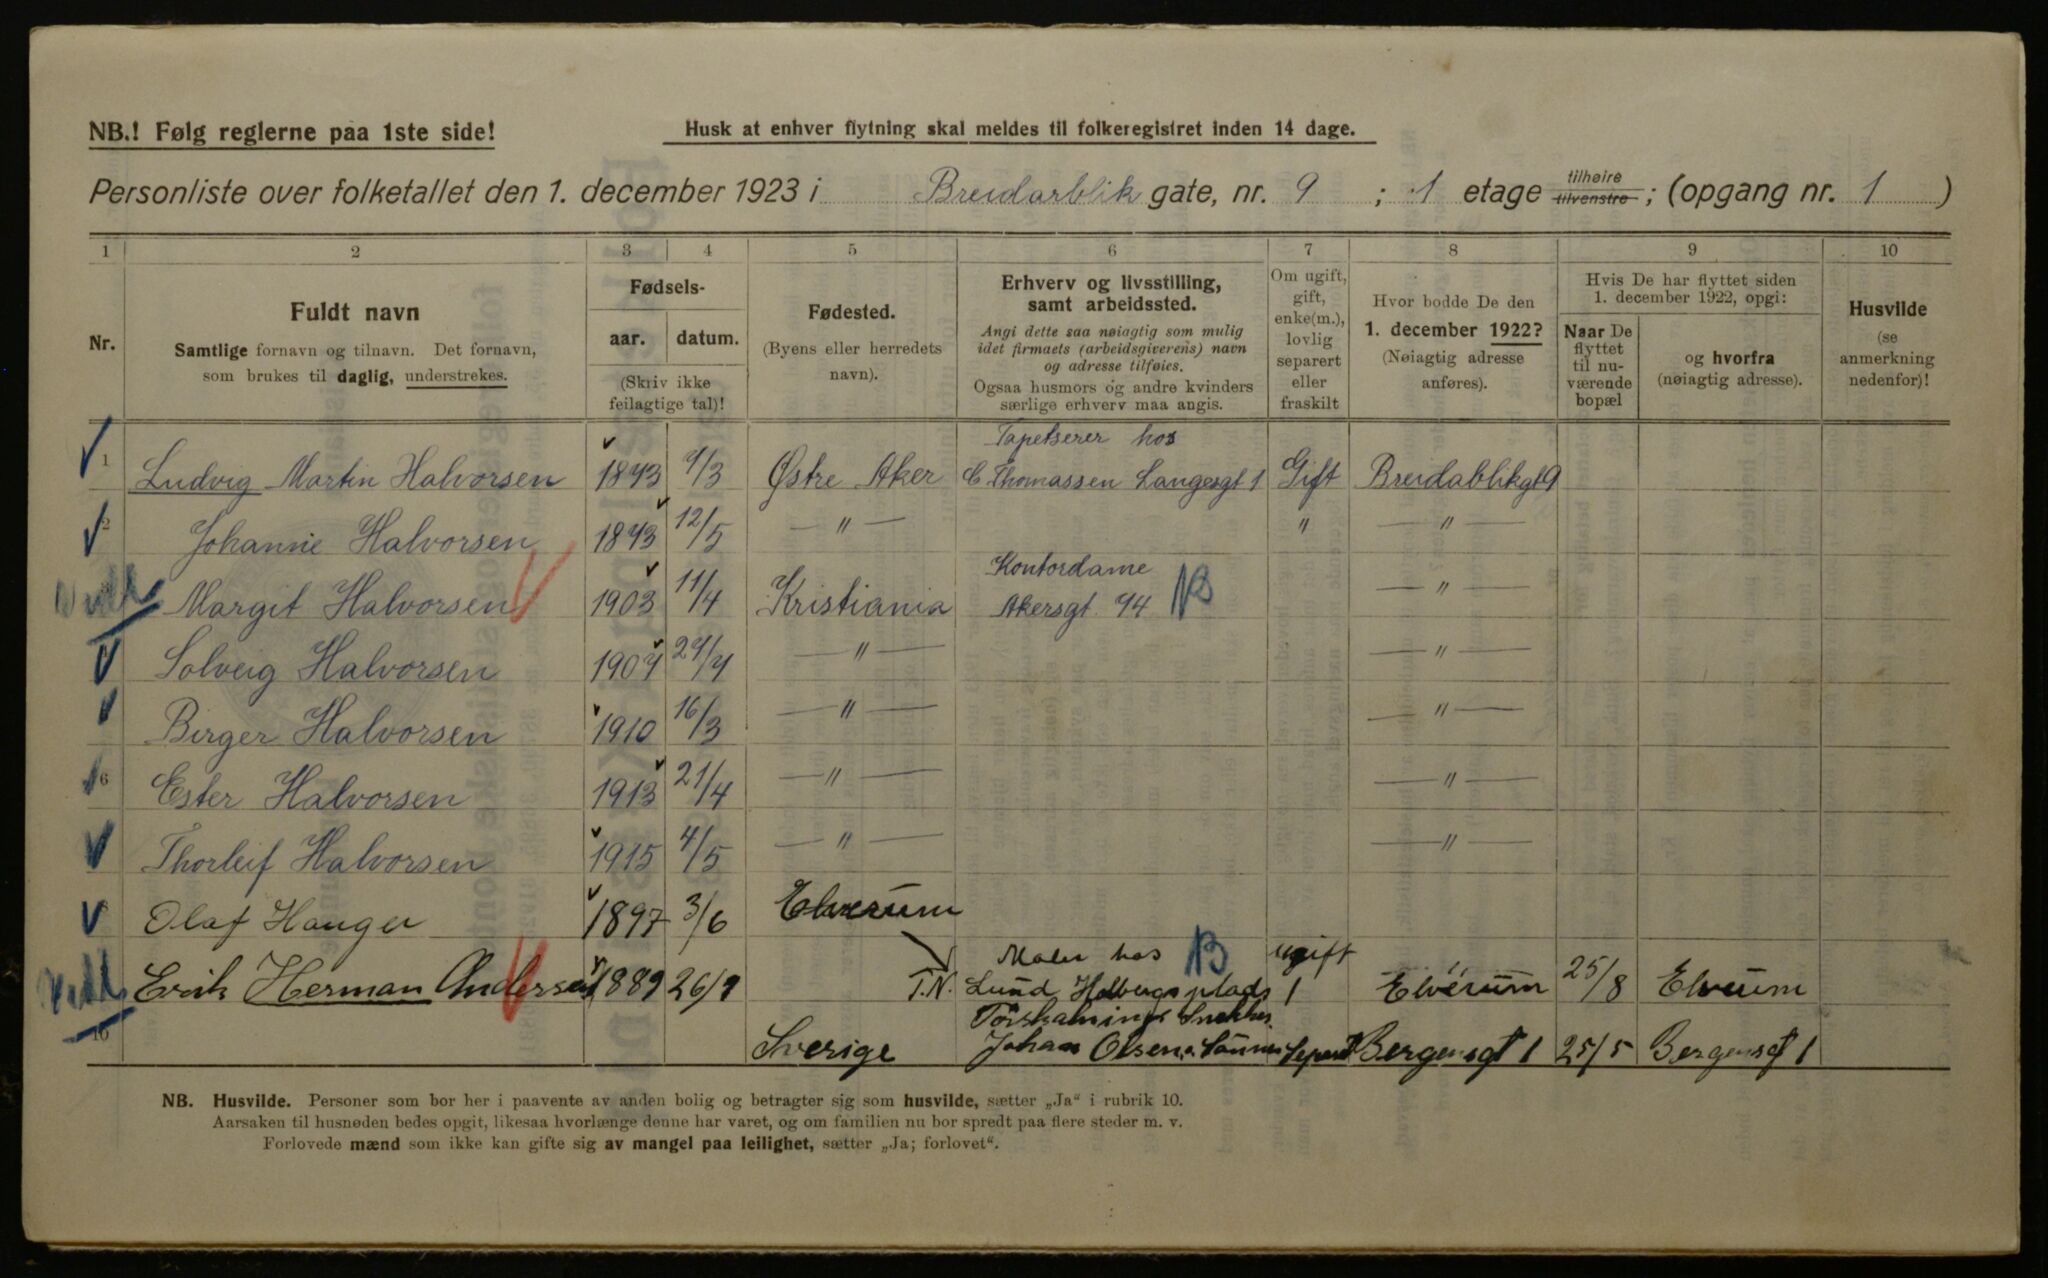 NB.! Følg reglerne paa 1ste side!
Husk at enhver flytning skal meldes til folkeregistret inden 14 dage.
Personliste over folketallet den 1. december 1923 i Breidarblik gate, nr. 9 ; 1 etage tilhøire tilvenstre ; (opgang nr. 1 )
1 2 3 4 5 6 7 8 9 10
Nr.
Fuldt navn
Samtlige fornavn og tilnavn. Det fornavn,
som brukes til daglig, understrekes.
Fødsels-
aar. datum.
(Skriv ikke
feilagtige tal)!
Fødested.
(Byens eller herredets
navn).
Erhverv og livsstilling,
samt arbeidssted.
Angi dette saa nøiagtig som mulig
idet firmaets (arbeidsgiverens) navn
og adresse tilføies.
Ogsaa husmors og andre kvinders
særlige erhverv maa angis.
Om ugift,
gift,
enke(m.),
lovlig
separert
eller
fraskilt
Hvor bodde De den
1. december 1922?
(Nøiagtig adresse
anføres).
Hvis De har flyttet siden
1. december 1922, opgi:
Naar De
flyttet
til nu-
værende
bopæl
og hvorfra
(nøiagtig adresse).
Husvilde
(se
anmerkning
nedenfor)!
Tapetserer hos
1 Ludvig Martin Halvorsen 1873 7/3 Østre Aker C Thomassen Langesgt 1 Gift Breidablikgt 9
2 Johanne Halvorsen 1873 12/5 — " — " — " —
Kontordame
Margit Halvorsen 1903 11/4 Kristiania Akersgt. 74 NB — " —
Solveig Halvorsen 1907 27/7 — " — — " —
Birger Halvorsen 1910 16/3 — " — — " —
6 Ester Halvorsen 1913 21/4 — " — — " —
Thorleif Halvorsen 1915 4/5 — " — — " —
Olaf Hauger 1897 3/6 Elverum
Maler hos NB ugift
Erik Herman Andersen 1889 26/9 T.N. Lund Holbergsplads 1 Elverum 25/8 Elverum
10 Sverige Johan Olsen Bergensgt 1 25/5 Bergensgt 1
NB. Husvilde. Personer som bor her i paavente av anden bolig og betragter sig som husvilde, sætter „Ja" i rubrik 10.
Aarsaken til husnøden bedes opgit, likesaa hvorlænge denne har varet, og om familien nu bor spredt paa flere steder m. v.
Forlovede mænd som ikke kan gifte sig av mangel paa leilighet, sætter „Ja; forlovet".